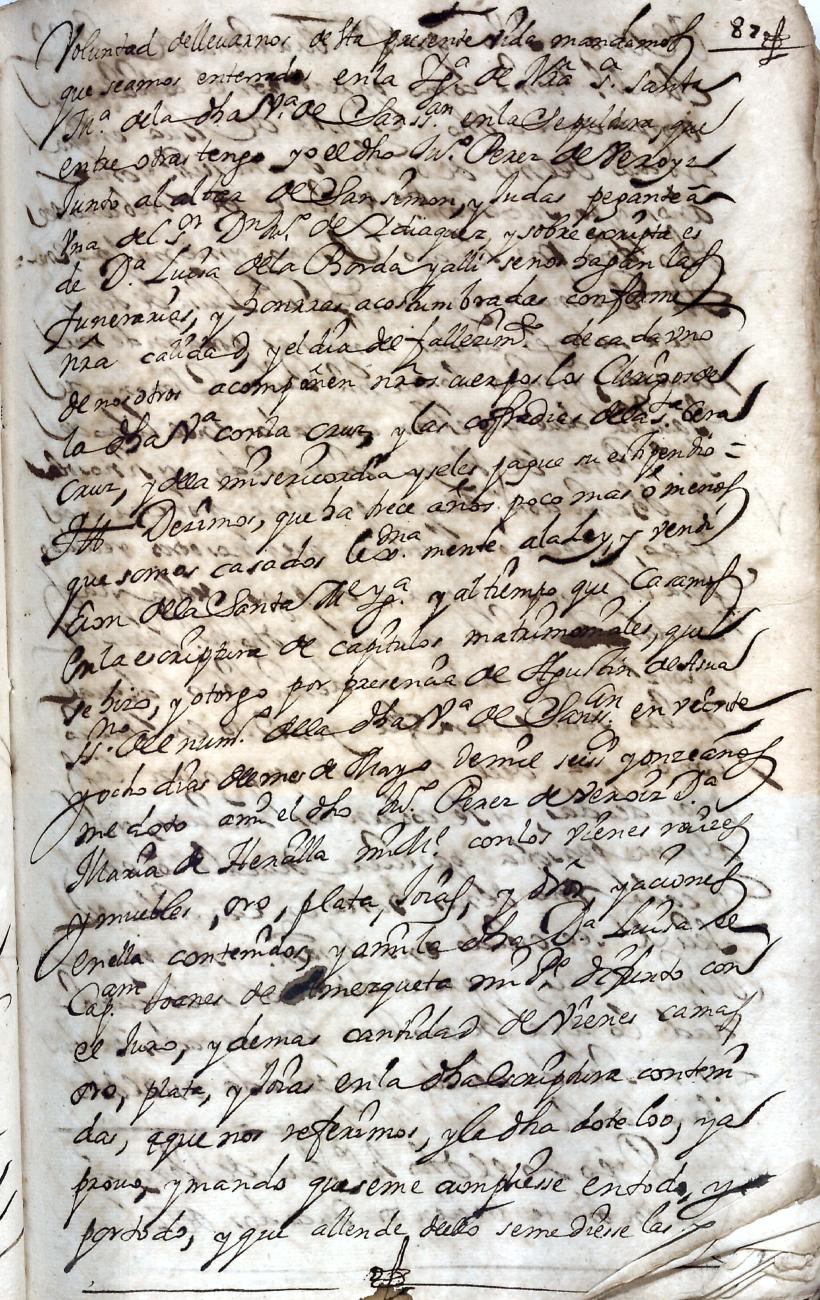 87
Voluntad dellevarnos desta presente vida mandamos
que seamos enterrados en la Yg.ª de Nrã S.ª Santa
M.ª de la dha V.ª de San Ss.an en la Sepultura, que
entre otras tengo yo el dho Ju.º Perez de Veroyz
Junto al altar de San Simon, y Judas pegante á
Vna del S.or Dn Ju.º de Ydiaquez, y sobre exripta es
de D.ª Luisa de la Borda y alli se nos hagan las
funerarias, y honrras acostumbradas conforme
nrã calidad, y el dia del fallezim.to de cada vno
de nosotros acompañen nrõs cuerpos los Clerigos de
la dha V.ª con la cruz, y las cofradias de la S.ta Vera
Cruz, y de la misericordia y seles pague su estipendio =
Ytt Dezimos, que ha trece años poco mas ó menos
que somos casados lex.ma mente a la Ley, y vendi
cion de la Santa M.e Yg.ª y al tiempo que Casamos
en la escriptura de capitulos matrimoniales, que
se hizo, y otorgo por presencia de Agustin de
ss.no del num.º de la dha V.ª de San Ss.an en veinte
y ocho dias del mes de Mayo de mil seis.s y onze años
me doto a mi el dho Ju.º Perez de Veroiz D.ª
Maria de mi M.e con los vienes raices
y muebles, oro, plata, Joias, y drõs y aciones
en ella contenidos, y a mi la dha D.ª Luisa el
Cap.am Joanes de Amezqueta mi P.e difunto con
el Juro, y demas cantidad de Vienes camas
oro, plata, y Joias en la dha escriptura conteni
das, aque nos referimos, y la dha dote loo, y a
provo, y mando que se me cumpliesse en todo, y
por todo, y que allende dello se me diesse las